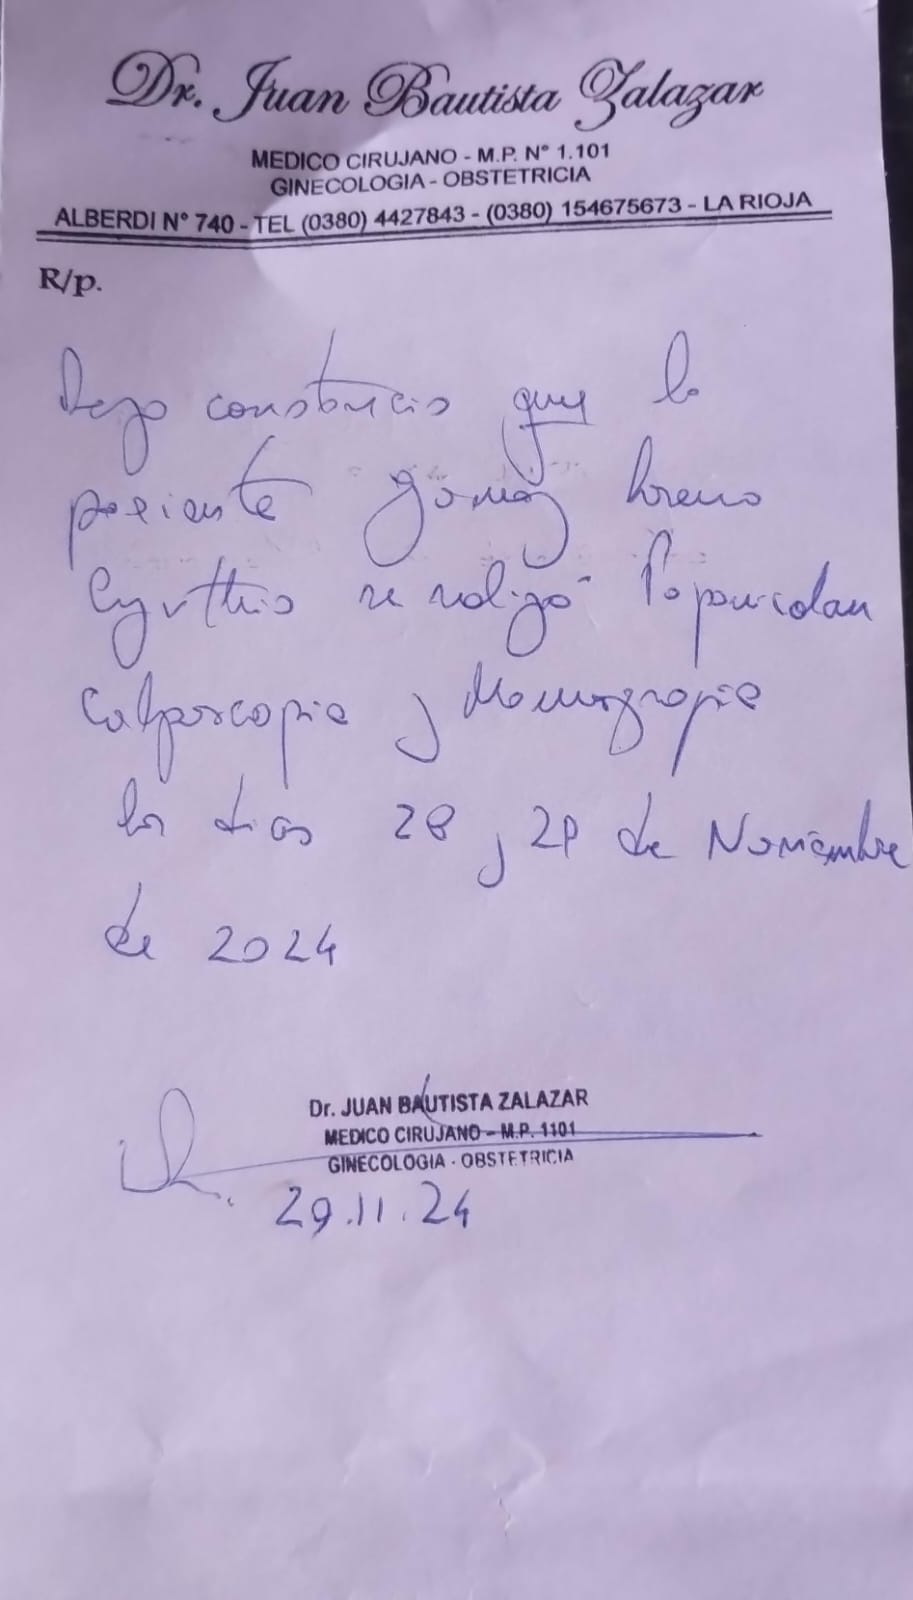 Dr. Juan Bautista Zalazar
MEDICO CIRUJANO - M.P. N° 1.101
GINECOLOGIA - OBSTETRICIA
ALBERDI N° 740 - TEL (0380) 4427843 - (0380) 154675673 - LA RIOJA
R/p.
Dejo constancia que la
paciente Gómez
Cynthia se realizó Papanicolau
Colposcopia y Mamografia
los dias 28 y 29 de Noviembre
de 2024
Dr. JUAN BAUTISTA ZALAZAR
MEDICO CIRUJANO - M.P. 1101
GINECOLOGIA - OBSTETRICIA
29.11.24